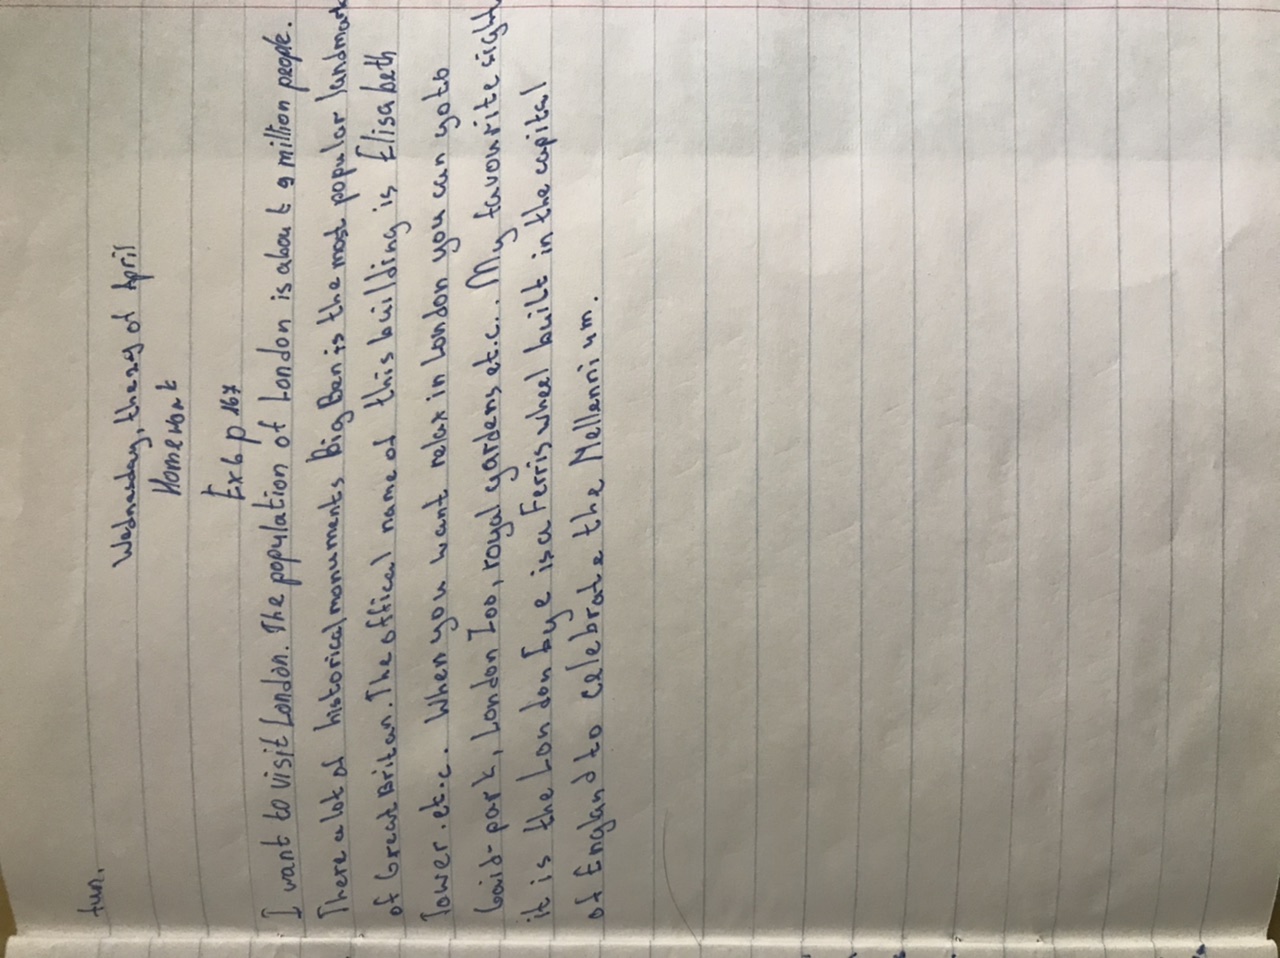 fun.
Wednesday, the 29 of April
Homework
Ex 6 p 167
I want to visit London. The population of London is about 9 million people.
There a lot of historical monuments. Big Ben is the most popular landmark
of Great Britan. The offical name of this building is Elisabeth
Tower. et.c. When you want relax in London you can go to
Gaid-park, London Zoo, royal gardens et.c.. My favourite sight
it is the London Eye is a Ferris wheel built in the capital
of England to celebrate the Mellennium.